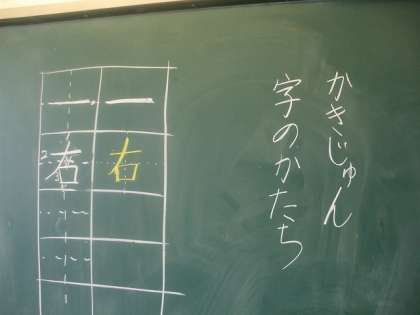 かきじゅん
字のかたち
一
右
一
右